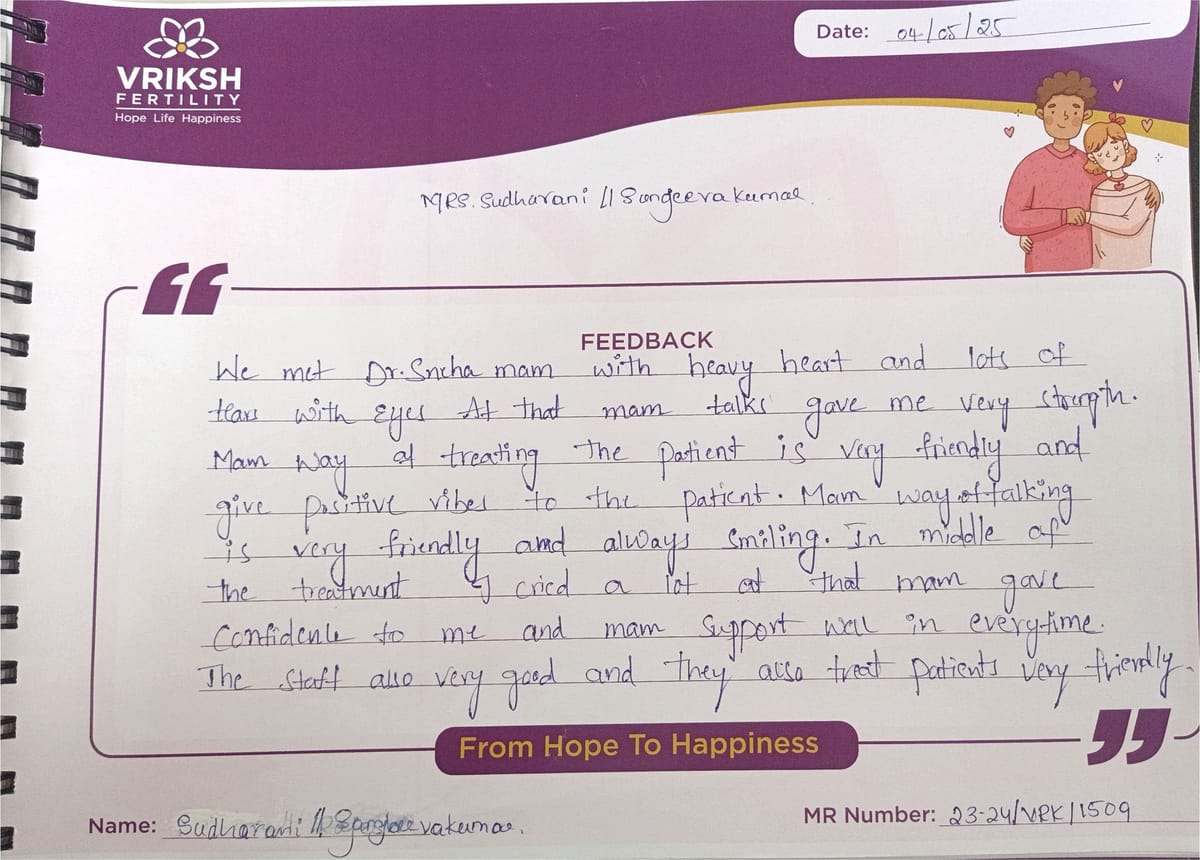 VRIKSH
FERTILITY
Hope Life Happiness
Date: 04/05/25
MRS. Sudharani // Sangeevakumar.
FEEDBACK
We met Dr. Sneha mam with heavy heart and lots of
tears with Eyes At that mam talks gave me very strength.
Mam way of treating the patient is very friendly and
give positive vibes to the patient. Mam way of talking
is very friendly and always smiling. In middle of
the treatment I cried a lot at that mam gave
Confidence to me and mam Support well in everytime.
The Staff also very good and they also treat patients very friendly.
From Hope To Happiness
Name: Sudharani // Sangeevakumar.
MR Number: 23-24/VRK/1509